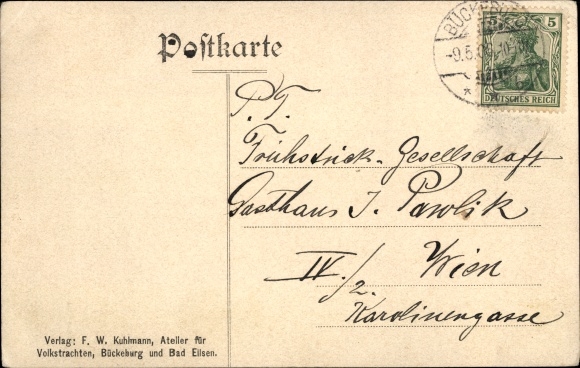 Postkarte
BÜCKEBURG
5
DEUTSCHES REICH
P. T.
Frühstück-Gesellschaft
Gasthaus J. Pawlik
IV./2. Wien
Karolinengasse
Verlag: F. W. Kuhlmann, Atelier für
Volkstrachten, Bückeburg und Bad Eilsen.